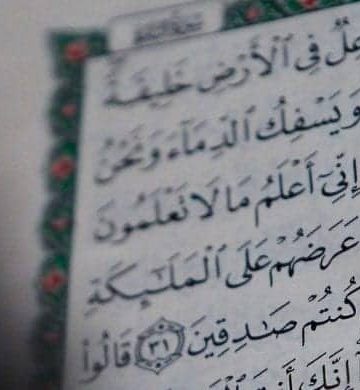 عِلٌ فِى ٱلْأَرْضِ خَلِيفَةً
وَيَسْفِكُ ٱلدِّمَآءَ وَنَحْنُ
إِنِّىٓ أَعْلَمُ مَا لَا تَعْلَمُونَ
عَرَضَهُمْ عَلَى ٱلْمَلَـٰٓئِكَةِ
كُنتُمْ صَـٰدِقِينَ ٣١ قَالُوا۟
إِنَّكَ أَنتَ